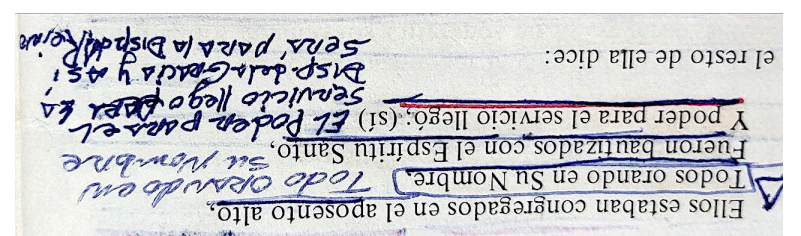 Ellos estaban congregados en el aposento alto,
Todos orando en Su Nombre, Todo orando en
su Nombre
Fueron bautizados con el Espíritu Santo,
Y poder para el servicio llegó; (sí) EL Poder para el
servicio llego PARA LA
DISP. de la Gracia y ASi
Será, para la Dispd. Reino
el resto de ella dice: